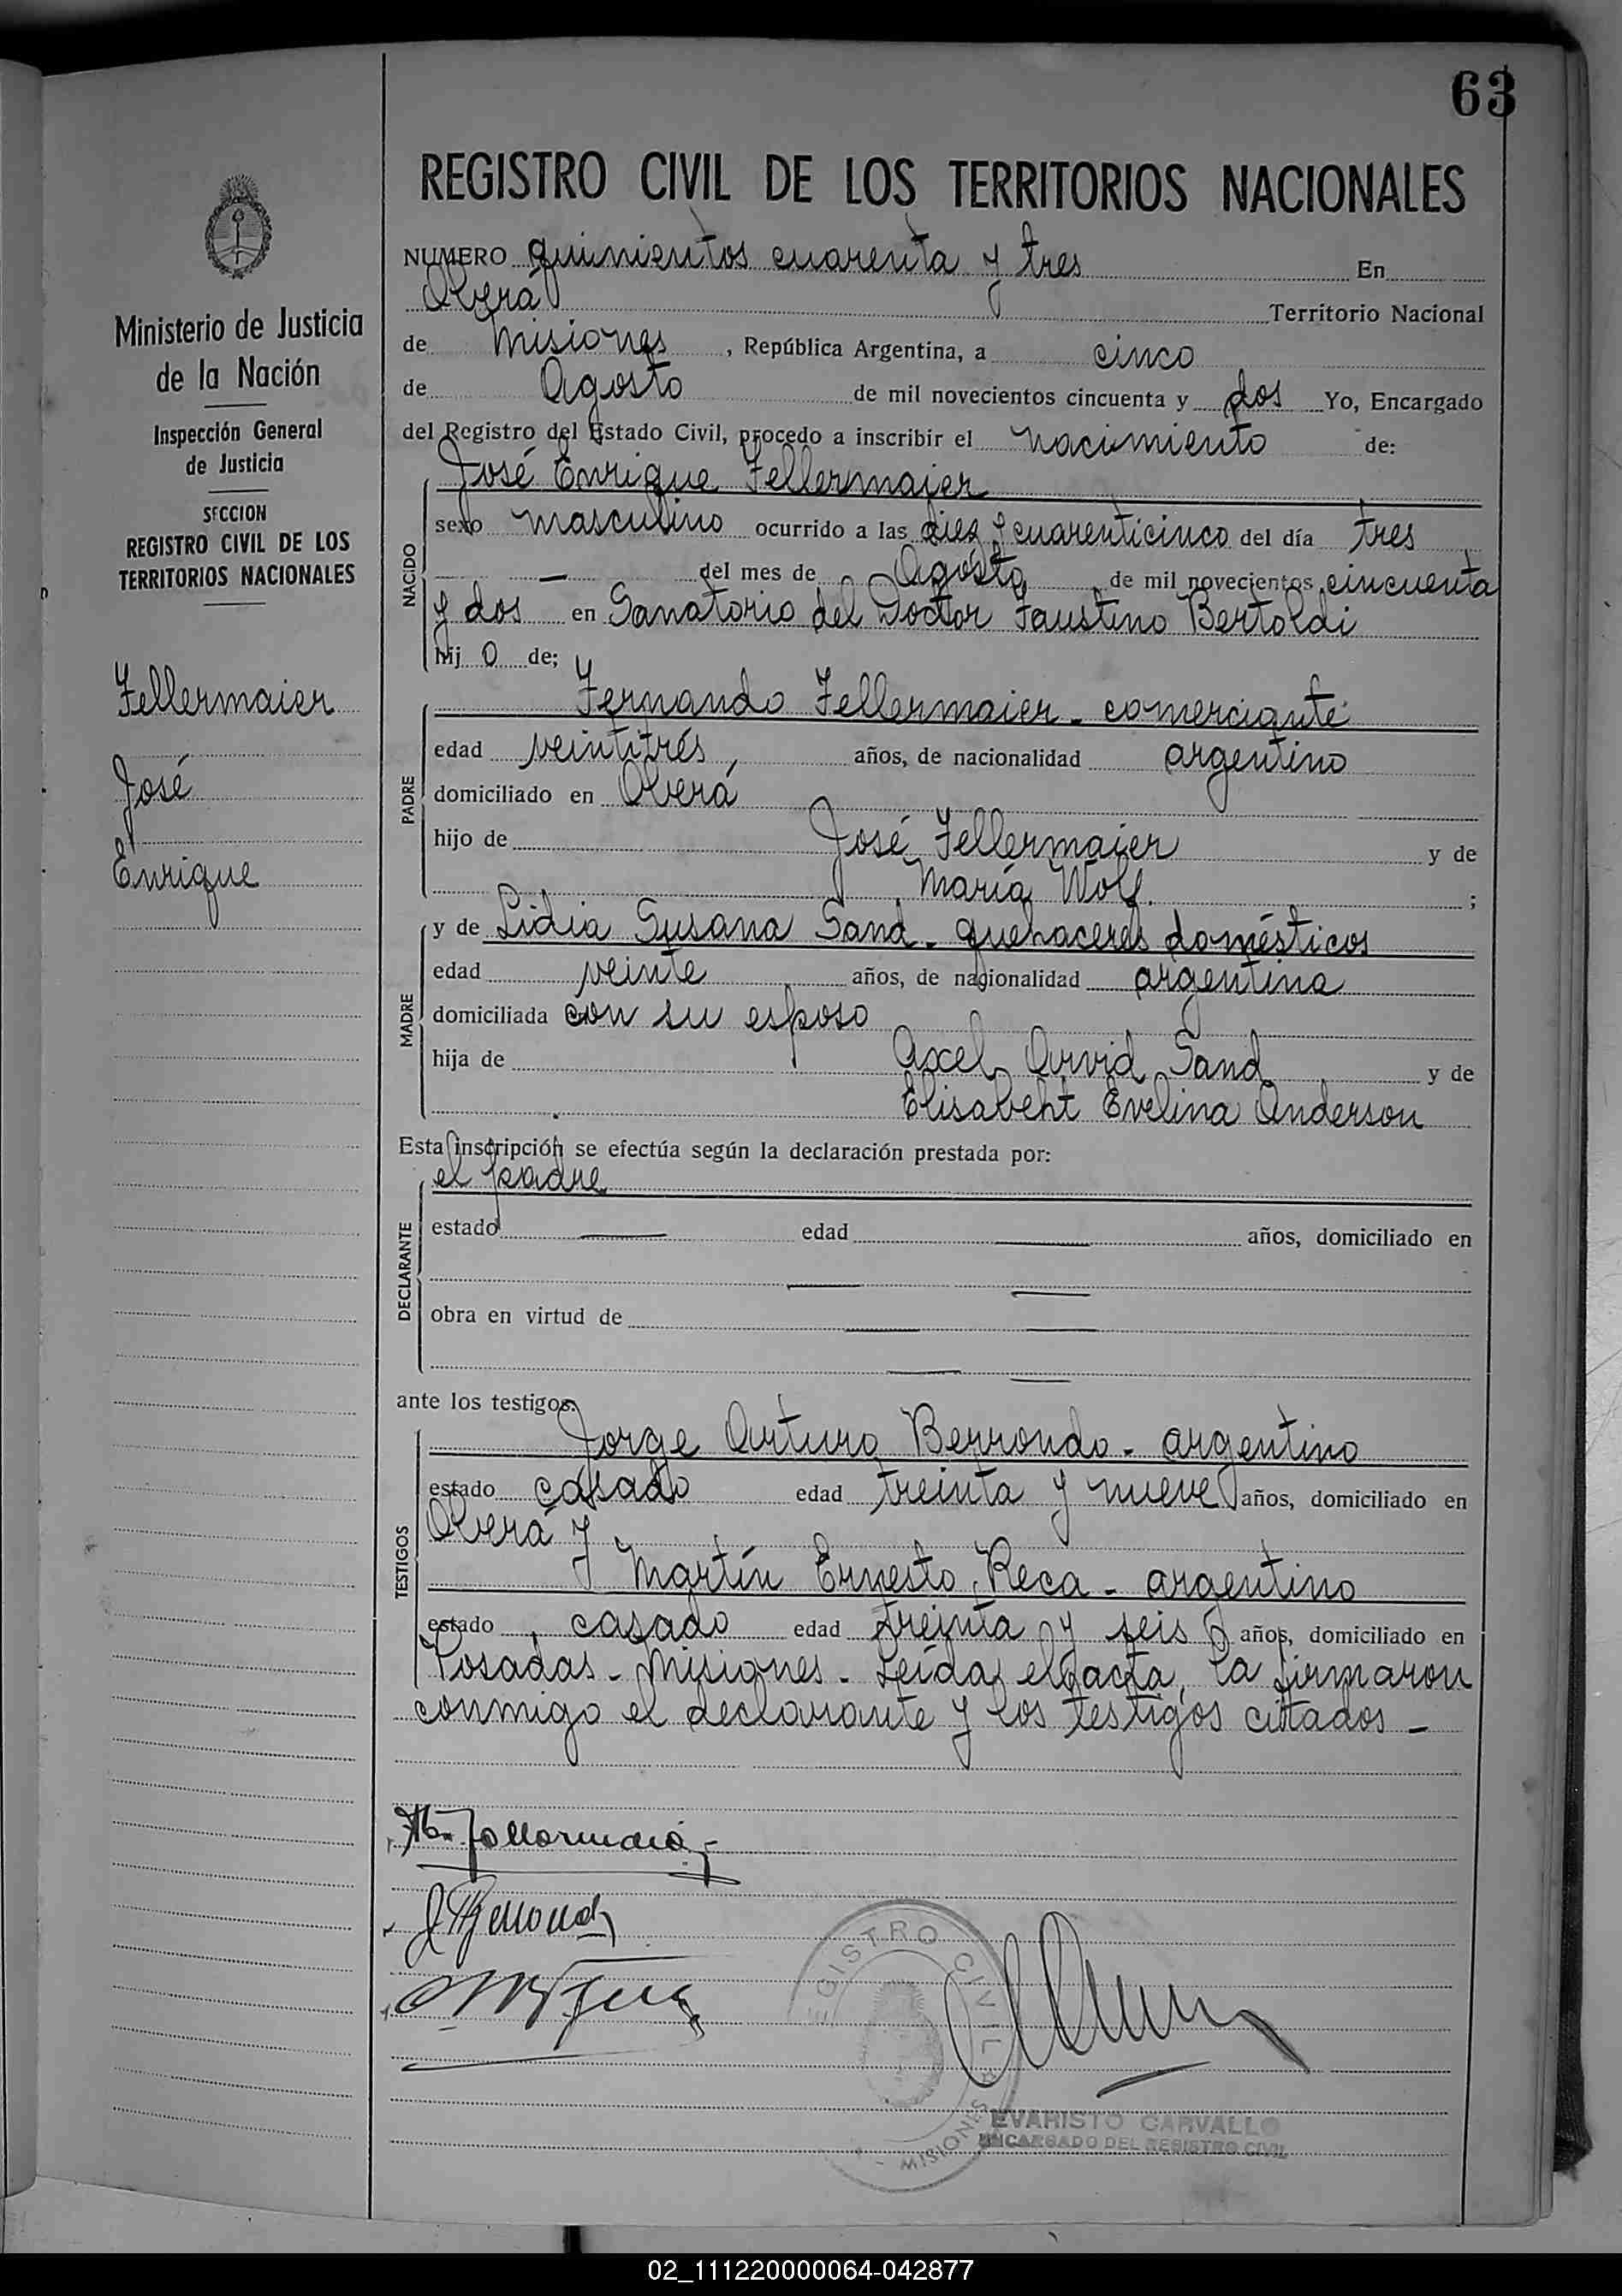 63
REGISTRO CIVIL DE LOS TERRITORIOS NACIONALES
Ministerio de Justicia
de la Nación
Inspección General
de Justicia
SECCION
REGISTRO CIVIL DE LOS
TERRITORIOS NACIONALES
Fellermaier
José
Enrique
NUMERO quinientos cuarenta y tres En
Oberá Territorio Nacional
de Misiones, República Argentina, a cinco
de Agosto de mil novecientos cincuenta y dos Yo, Encargado
del Registro del Estado Civil, procedo a inscribir el nacimiento de:
José Enrique Fellermaier
NACIDO
sexo masculino ocurrido a las diez y cuarenticinco del día tres
— del mes de Agosto de mil novecientos cincuenta
y dos en Sanatorio del Doctor Faustino Bertoldi
hij o de;
Fernando Fellermaier - comerciante
PADRE
edad veintitrés, años, de nacionalidad argentino
domiciliado en Oberá
hijo de José Fellermaier y de
María Wolf. ;
y de Lidia Susana Sand - quehaceres domésticos
MADRE
edad veinte años, de nacionalidad argentina
domiciliada con su esposo
hija de Axel Arvid Sand y de
Elisabeht Evelina Anderson
Esta inscripción se efectúa según la declaración prestada por:
el padre
DECLARANTE
estado — edad — años, domiciliado en
— —
obra en virtud de — —
— —
ante los testigos:
Jorge Arturo Berrondo - argentino
TESTIGOS
estado casado edad treinta y nueve años, domiciliado en
Oberá y
Martín Ernesto Reca - argentino
estado casado edad treinta y seis años, domiciliado en
Posadas - Misiones - Leída el acta, la firmaron
conmigo el declarante y los testigos citados -
REGISTRO CIVIL
MISIONES
EVARISTO CARVALLO
ENCARGADO DEL REGISTRO CIVIL
02_111220000064-042877